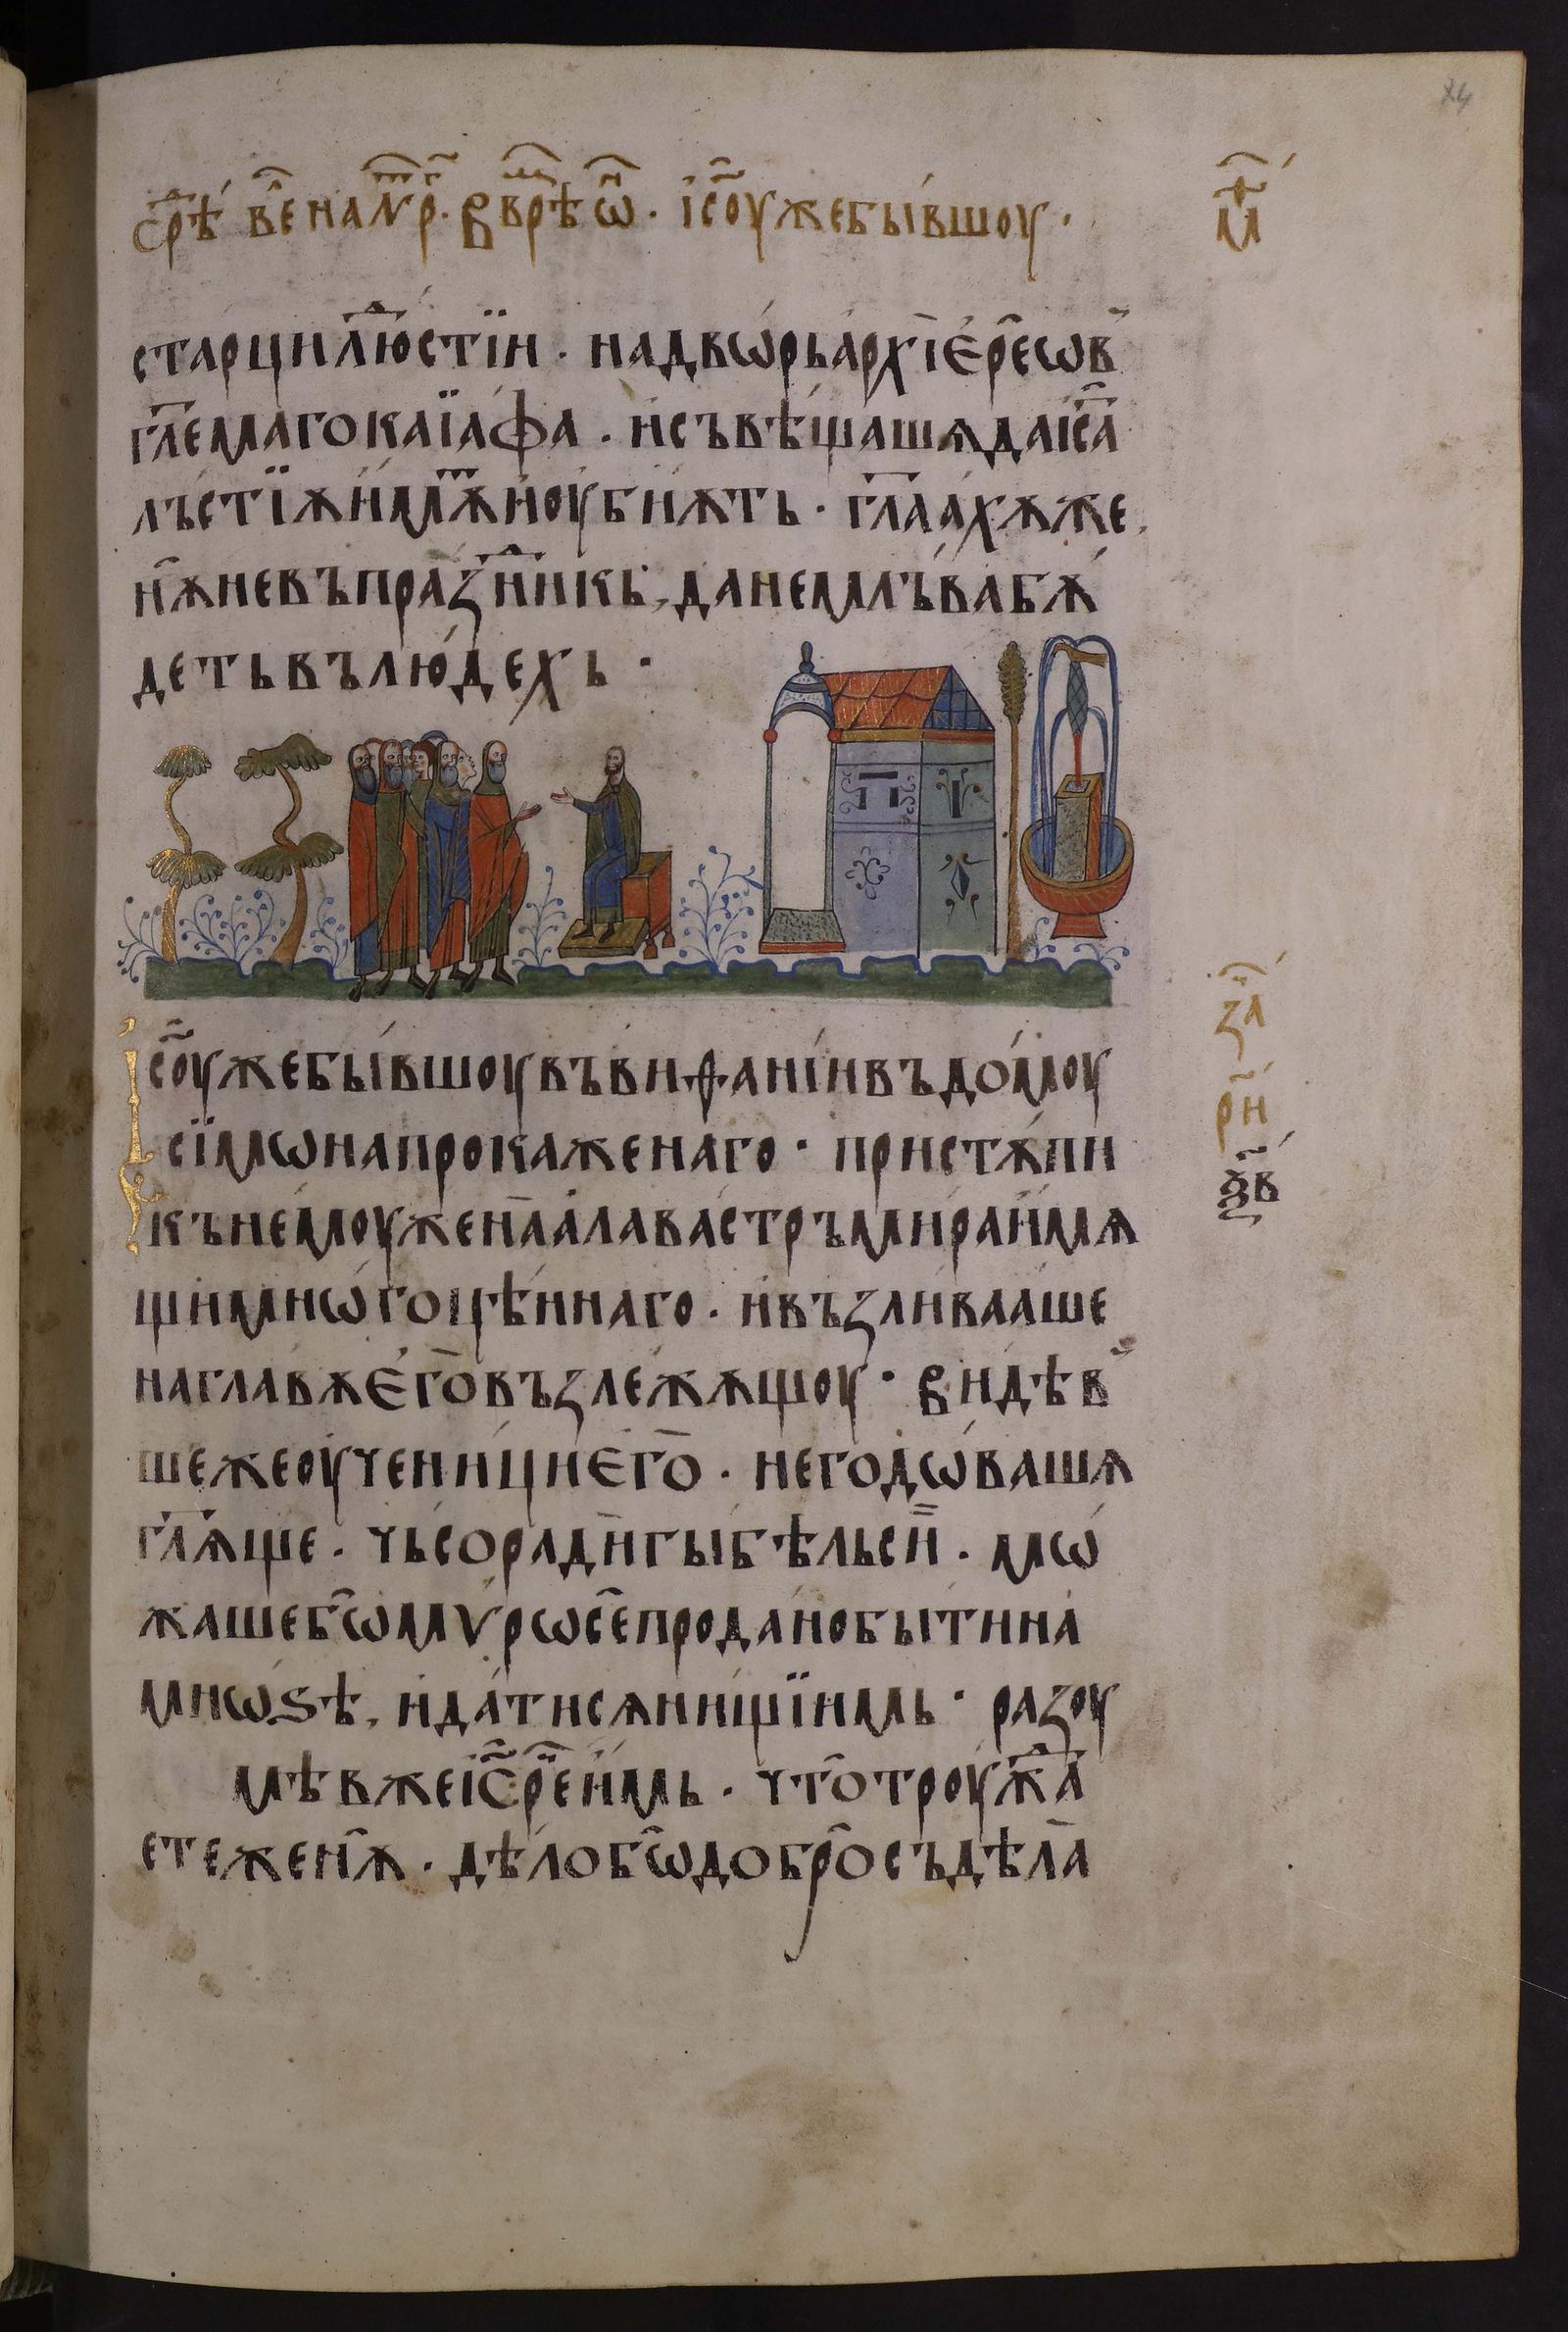 старцилю́стїи · надвѡ́рьархїе́реѡв
гл҃емагокаїа́фа · исъвѣщашѧдаіс҃а
льстїѫи́мѫ́тъиоубиѫть · гл҃аахѫже
нѫ҆невъпразникь, данемлъ́вабѫ
детьвълю́дехь ·
Іс҃оужебы́вшоувъвиѳанїивъдо́моу
сїмѡнапрокаженаго · пристѫ́пи
кънемоуженаа҆лавастръми́раи҆мѧ
щимнѡ́гоцѣ́ннаго · ивъзлива́аше
наглавѫего҆възлежѧщоу · видѣв
шежеоученици́его҆ · негодѡ́вашѧ
гл҃ѫще · чьсоради́гыбѣльсїи · мѡ́
жашебѡмѵ́рѡсепрода́нобы́тина
мнѡ́ѕѣ, ида́тисѧнищїимь · разоу
мѣвжеіс҃реи҆мь · чтотроужа
етежен҆ѫ · дѣ́лобѡдобросъдѣ́ла
24